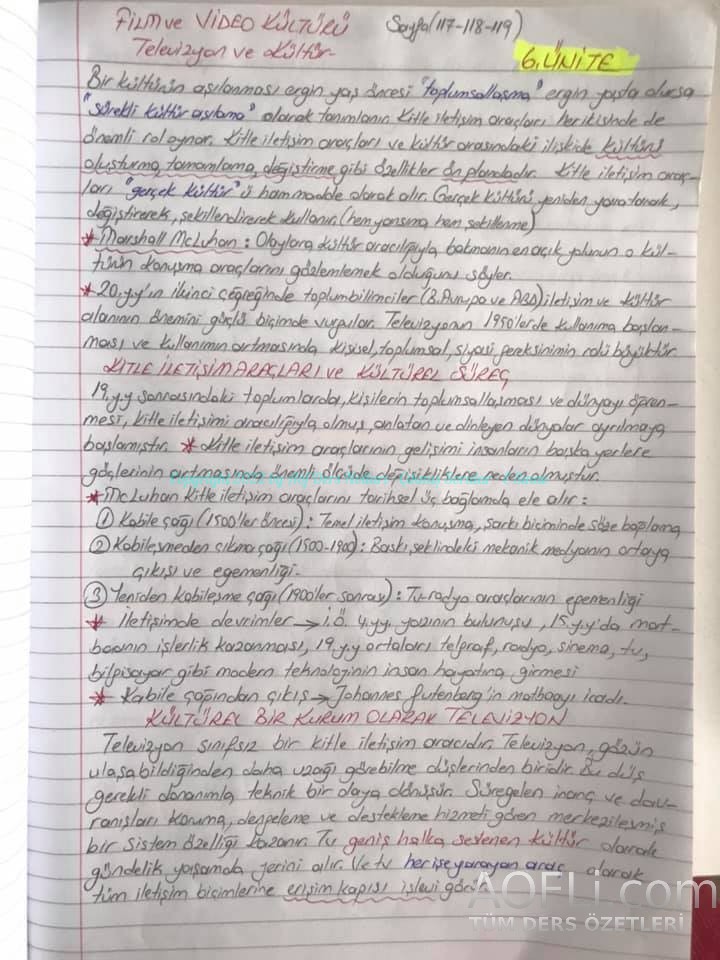 FİLM ve VİDEO KÜLTÜRÜ Sayfa (117-118-119)
Televizyon ve Kültür 6. ÜNİTE
Bir kültürün aşılanması ergin yaş öncesi "toplumsallaşma" ergin yaşta olursa
"sürekli kültür aşılama" olarak tanımlanır. Kitle iletişim araçları her ikisinde de
önemli rol oynar. Kitle iletişim araçları ve kültür arasındaki ilişkide kültürü
oluşturma, tamamlama, değiştirme gibi özellikler ön plandadır. Kitle iletişim araç-
ları "gerçek kültür"ü hammadde olarak alır. Gerçek kültürü yeniden yaratarak,
değiştirerek, şekillendirerek kullanır. (hem yansıma hem şekillenme)
* Marshall McLuhan : Olaylara kültür aracılığıyla bakmanın en açık yolunun o kül-
türün konuşma araçlarını gözlemlemek olduğunu söyler.
* 20. yy'ın ikinci çeğreğinde toplumbilimciler (B.Avrupa ve ABD) iletişim ve kültür
alanının önemini güçlü biçimde vurgular. Televizyonun 1950'lerde kullanıma başlan-
ması ve kullanımın artmasında kişisel, toplumsal, siyasi gereksinimin rolü büyüktür
KİTLE İLETİŞİM ARAÇLARI ve KÜLTÜREL SÜREÇ
19. yy sonrasındaki toplumlarda, kişilerin toplumsallaşması ve dünyayı öğren-
mesi, kitle iletişimi aracılığıyla olmuş, anlatan ve dinleyen dünyalar ayrılmaya
başlamıştır. * Kitle iletişim araçlarının gelişimi insanların başka yerlere
göçlerinin artmasında önemli ölçüde değişikliklere neden olmuştur.
* McLuhan kitle iletişim araçlarını tarihsel üç bağlamda ele alır :
① Kabile çağı (1500'ler öncesi) : Temel iletişim konuşma, şarkı biçiminde söze bağlama
② Kabileşmeden çıkma çağı (1500-1900) : Baskı şeklindeki mekanik medyanın ortaya
çıkışı ve egemenliği.
③ Yeniden kabileşme çağı (1900'ler sonrası) : Tv-radyo araçlarının egemenliği
* İletişimde devrimler → İ.Ö. 4.yy. yazının bulunuşu, 15.yy'da mat-
baanın işlerlik kazanması, 19.yy ortaları telgraf, radyo, sinema, tv,
bilgisayar gibi modern teknolojinin insan hayatına girmesi
* Kabile çağından çıkış → Johannes Gutenberg'in matbaayı icadı.
KÜLTÜREL BİR KURUM OLARAK TELEVİZYON
Televizyon sınıfsız bir kitle iletişim aracıdır. Televizyon, gözün
ulaşabildiğinden daha uzağı görebilme düşlerinden biridir. Bu düş
gerekli donanımla teknik bir olaya dönüşür. Süregelen inanç ve dav-
ranışları koruma, dengeleme ve destekleme hizmeti gören merkezileşmiş
bir sistem özelliği kazanır. Tv geniş halka seslenen kültür olarak
gündelik yaşamda yerini alır. Ve tv her işe yarayan araç olarak
tüm iletişim biçimlerine erişim kapısı işlevi görür.
AOFLi.com
TÜM DERS ÖZETLERİ